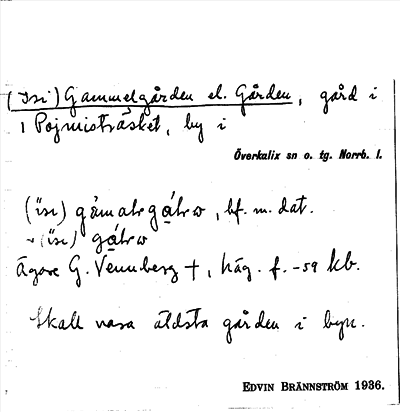 (Isi) Gammelgården el. Gården, gård i
1 Pojmisträsket, by i
Överkalix sn o. tg. Norrb. l.
(ĩsi) gåmalgq̊lrw, bf. m. dat.
~ (ĩsi)
Ägare G. Vennberg †, häg. f. -59 kb.
Skall vara äldsta gården i byn.
EDVIN BRÄNNSTRÖM 1936.